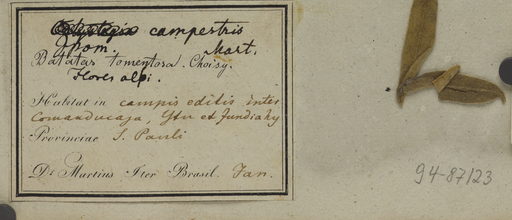 campestris
Ipom. Mart.
Batatas tomentosa. Choisy.
Flores albi.
Habitat in campis editis inter
Comanducaja, Ytu et Jundiahy
Provinciae S. Pauli
Dr. Martius Iter Brasil. Jan.
94-87123